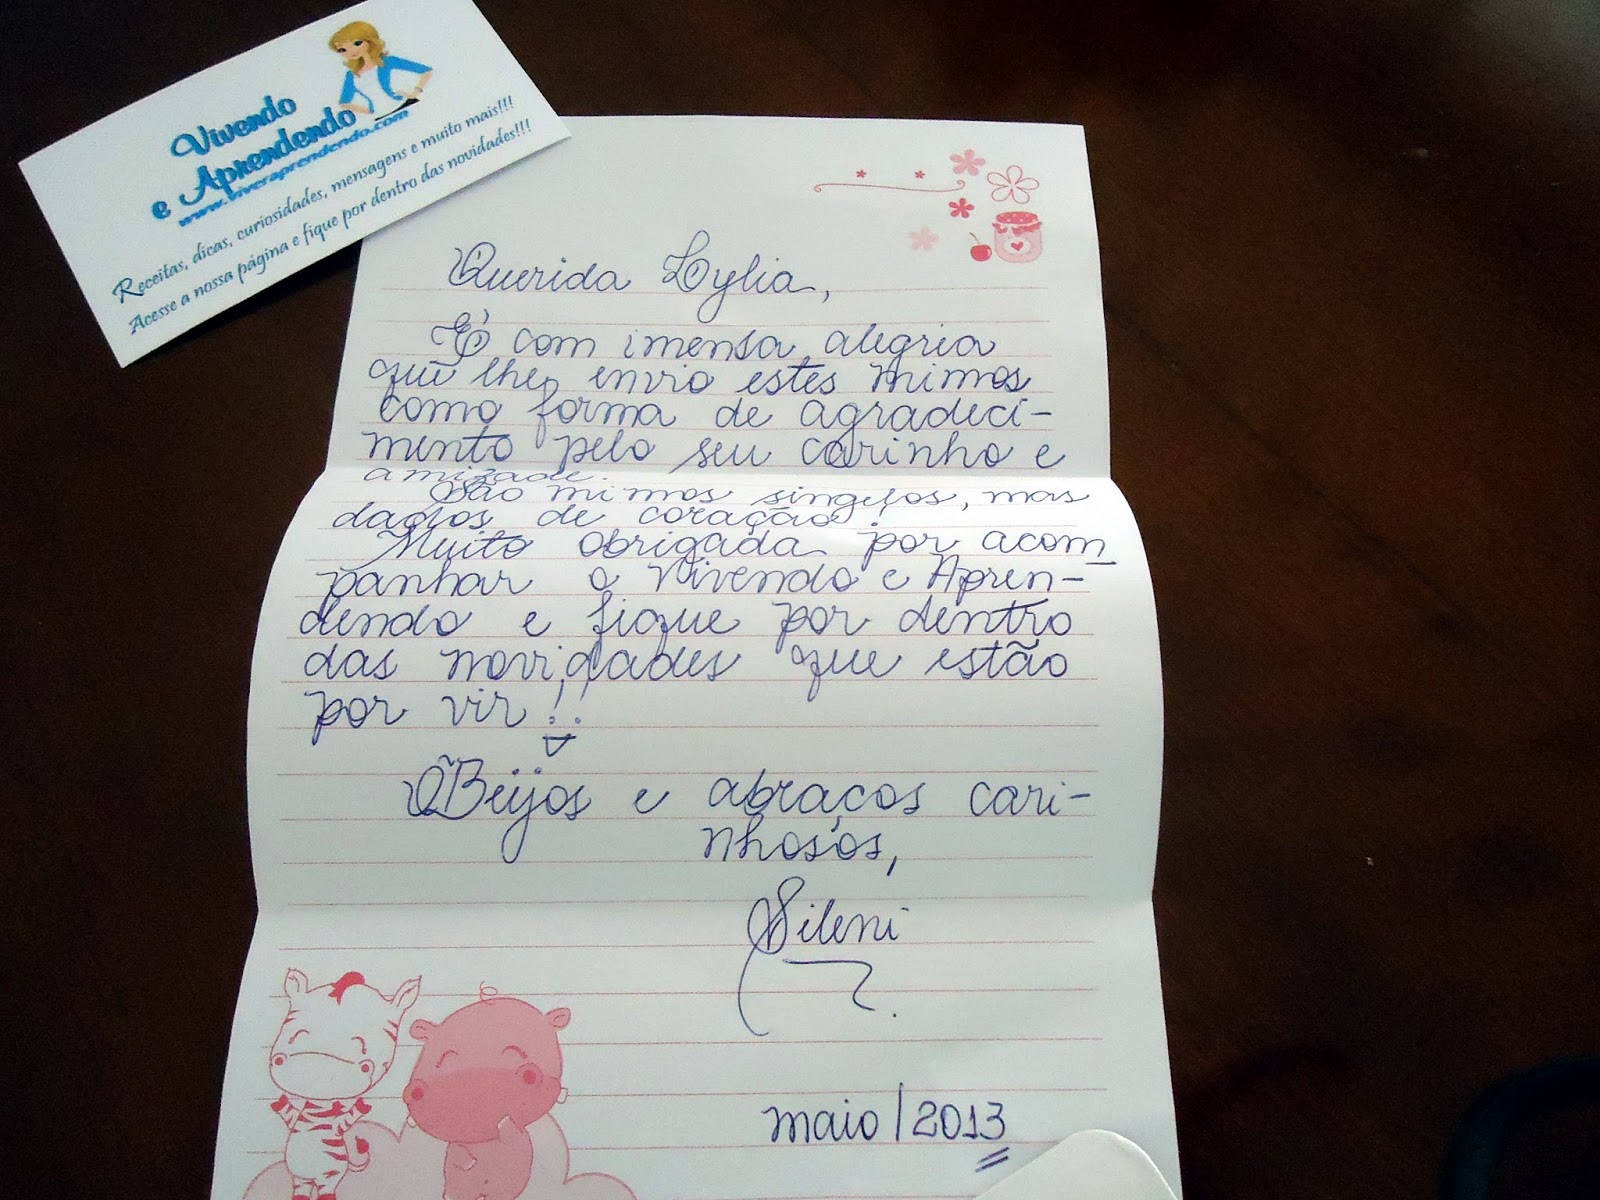 Vivendo
e Aprendendo
www.viveraprendendo.com
Receitas, dicas, curiosidades, mensagens e muito mais!!!
Acesse a nossa página e fique por dentro das novidades!!!
Querida Lylia,
É com imensa alegria
que lhe envio estes mimos
como forma de agradeci-
mento pelo seu carinho e
amizade.
São mimos singelos, mas
dados de coração!
Muito obrigada por acom
panhar o Vivendo e Apren-
dendo e fique por dentro
das novidades que estão
por vir!!
Beijos e abraços cari-
nhosos,
Sileni
maio/2013